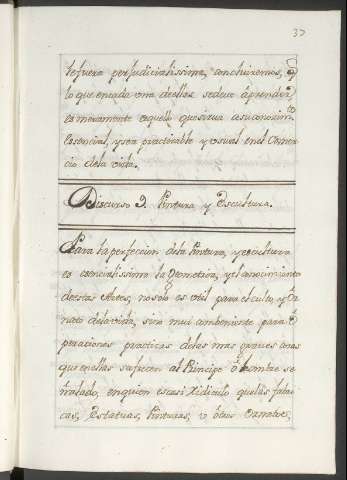 37
le fuera perjudicialissima, concluiremos, q̃
lo que en cada una de ellas se deve âprender
es meramente aquello que sirva a su conocim.to
Essencial, y sea practicable y usual en el Comer
cio de la vida.
Discurso 9. Pintura y Escultura.
Para la perfeccion de la Pintura, y escultura
es esencialissima la Geometria, y el conocimiento
de estas Artes, no solo es util para el culto, y Or
nato de la vida, sino mui combeniente para
peraciones practicas de las mas graves cosas
que en ellas se ofrecen al Principe ô hombre se
ñalado, en quien es casi Xidiculo que las fabri
cas, Estatuas, Pinturas, ù otros Ornatos,